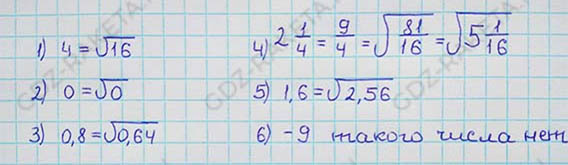 1) 4 = √16
2) 0 = √0
3) 0,8 = √0,64
4) 2 1/4 = 9/4 = √(81/16) = √(5 1/16)
5) 1,6 = √2,56
6) -9 такого числа нет
GDZ-RAKETA.COM